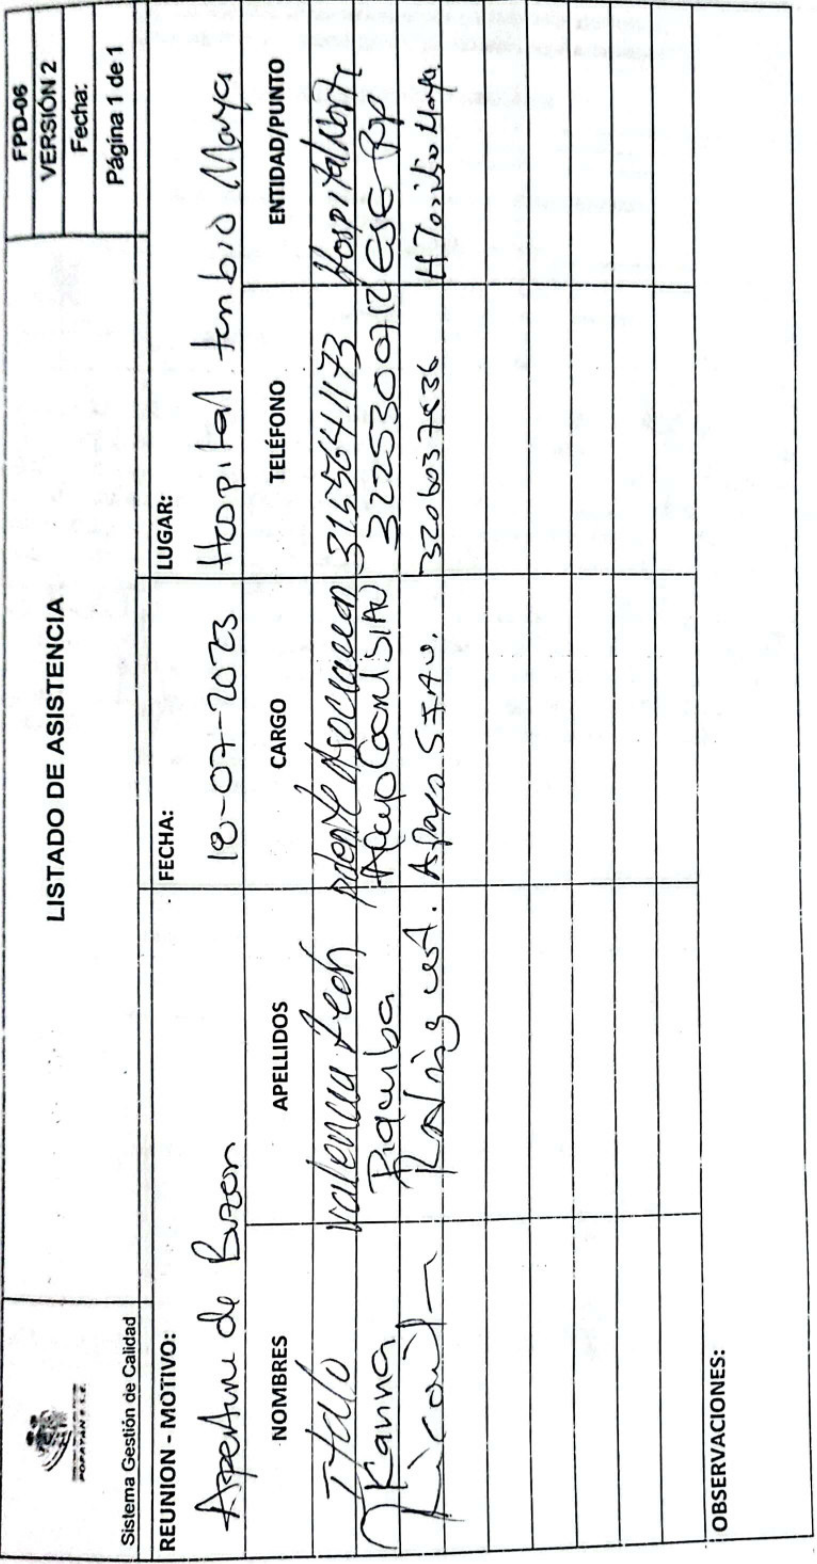 POPAYÁN E.S.E.
Sistema Gestión de Calidad
LISTADO DE ASISTENCIA
FPD-06
VERSIÓN 2
Fecha:
Página 1 de 1
REUNION - MOTIVO:
Apertura de Buzon
FECHA:
18-07-2023
LUGAR:
Hospital Toribio Maya
NOMBRES APELLIDOS CARGO TELÉFONO ENTIDAD/PUNTO
Italo Valencia Asociacion 3155641173 Hospital Norte
Karina Piamba Apoyo SIAU 3225300712 ESE Pop
Apoyo SIAU. H Toribio Maya.
OBSERVACIONES: